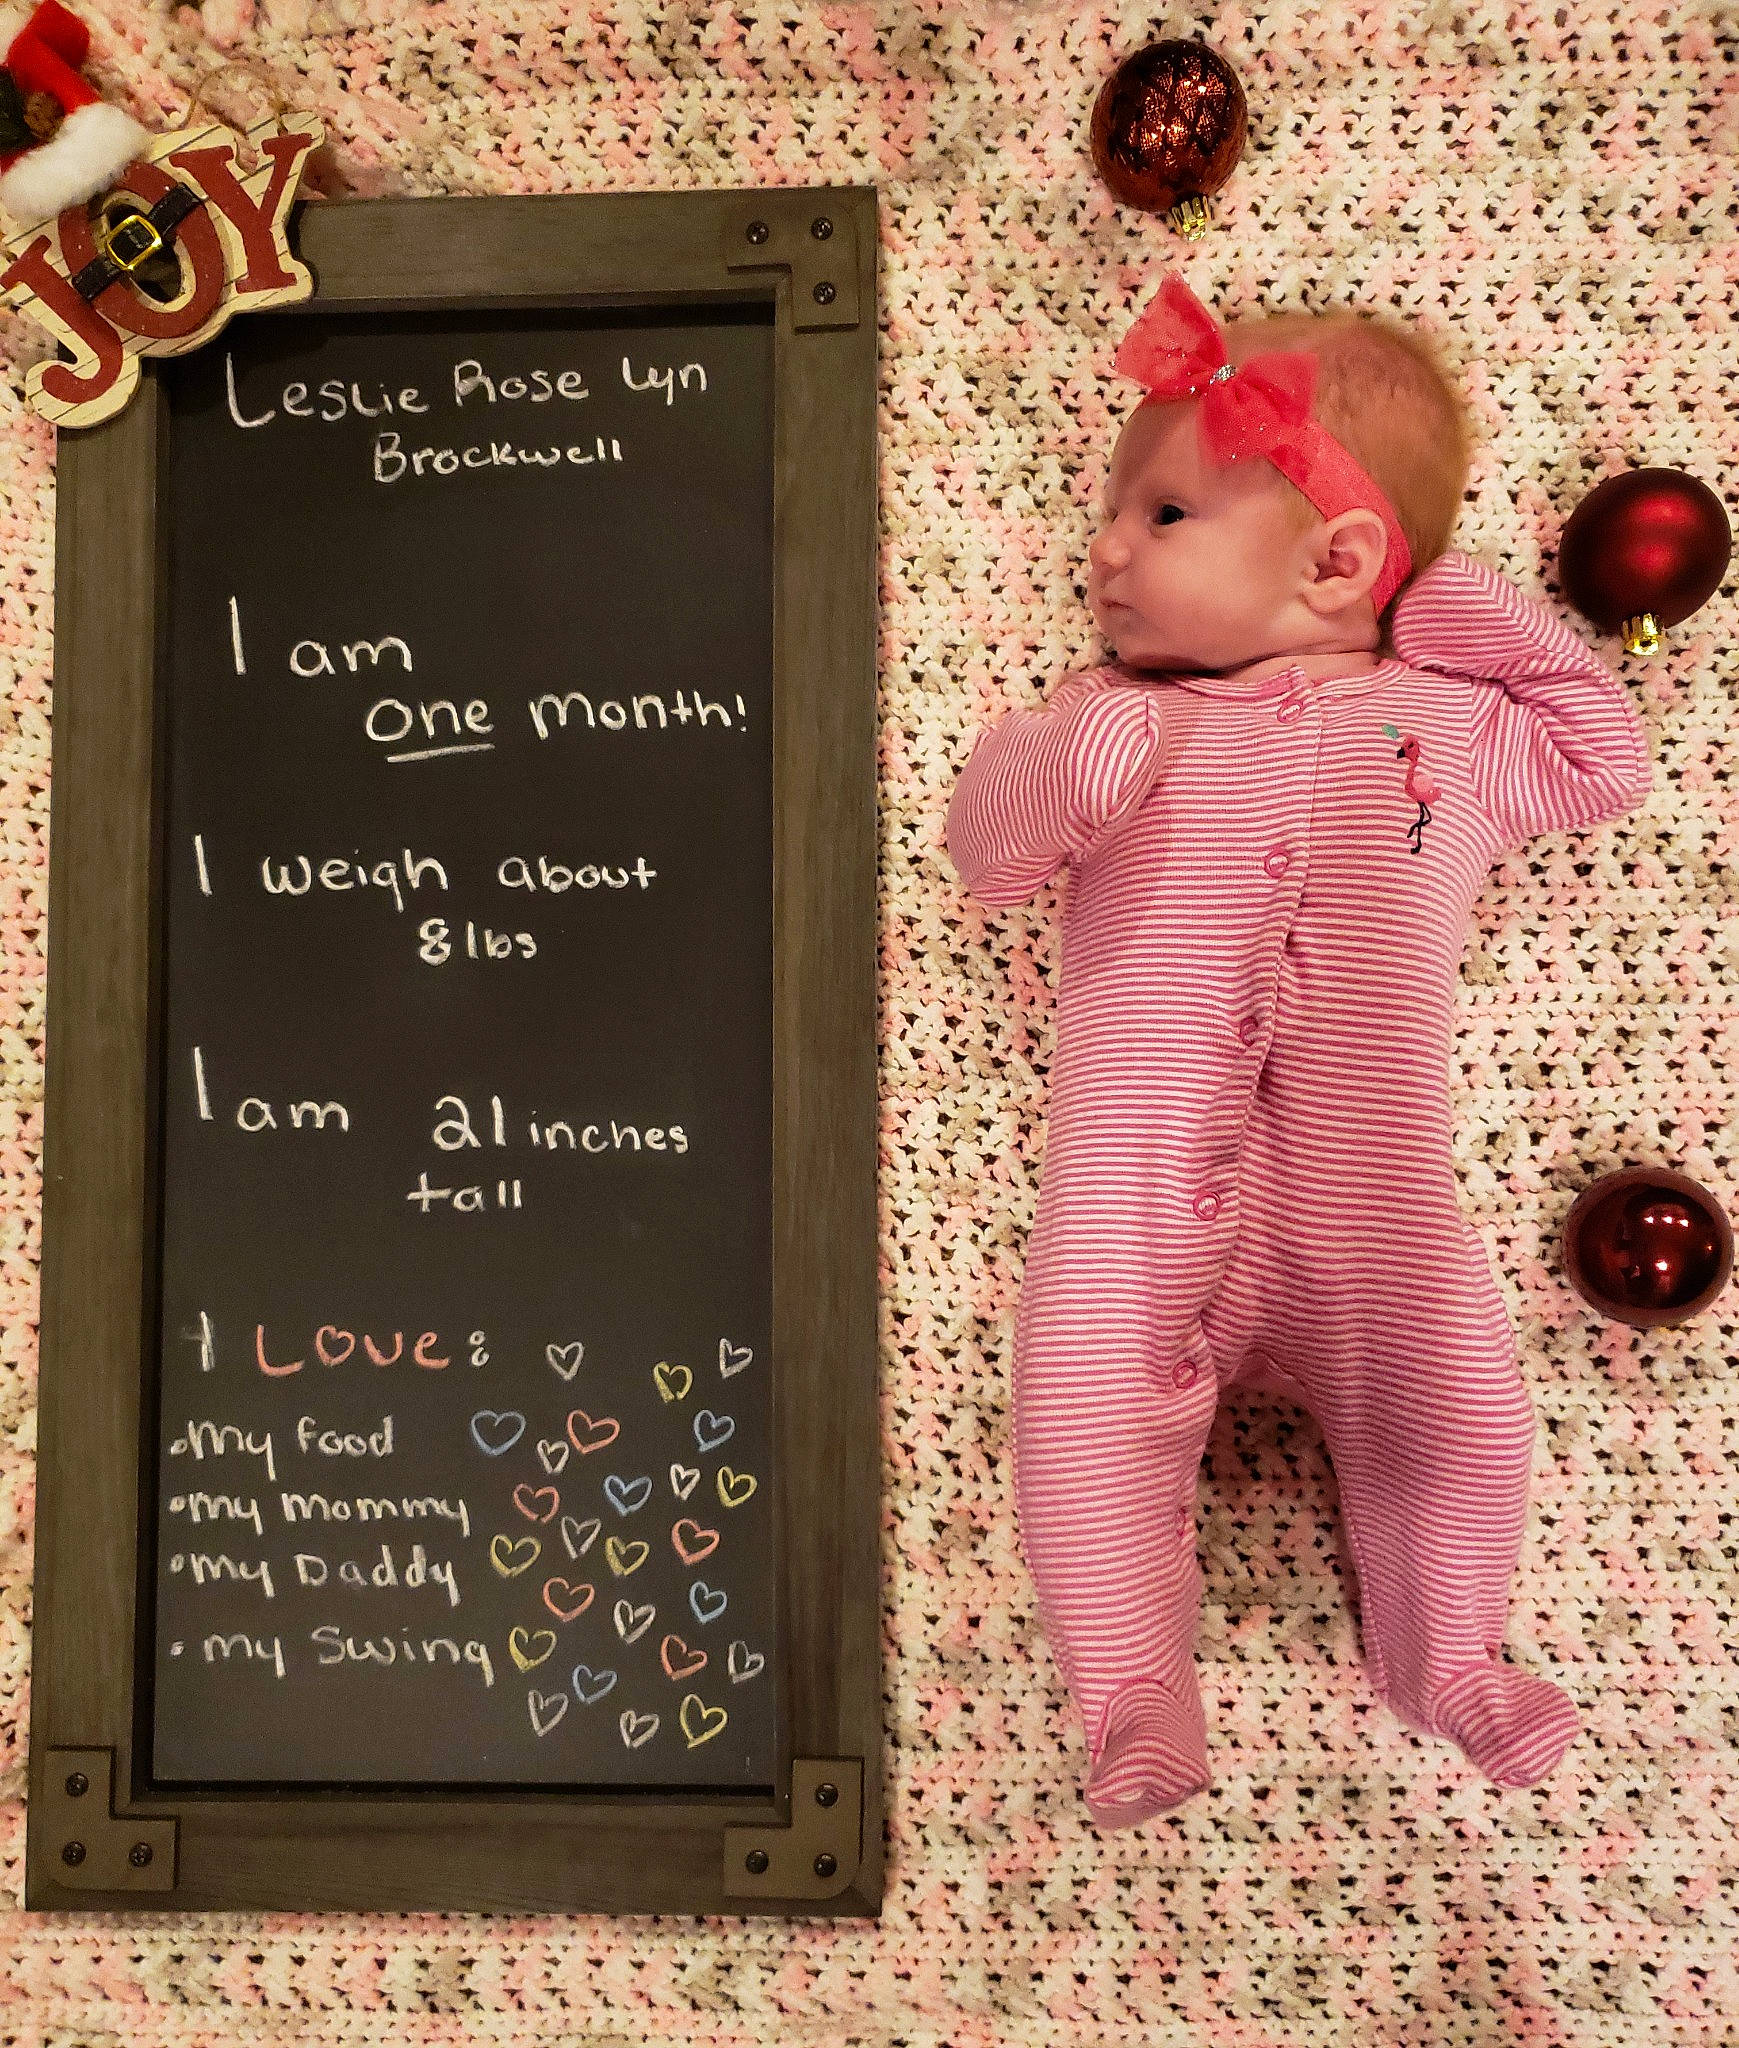 JOY
Leslie Rose Lyn
Brockwell
I am
one month!
I weigh about
8 lbs
I am 21 inches
tall
I Love:
• my food
• my mommy
• my Daddy
• my Swing